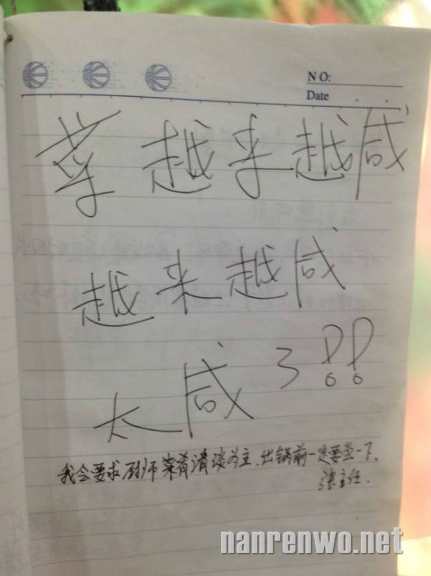 NO:
Date
菜越来越咸
越来越咸
太咸了!!
我会要求厨师菜肴清谈为主.出锅前一定要尝一下.
张主任.
nanrenwo.net